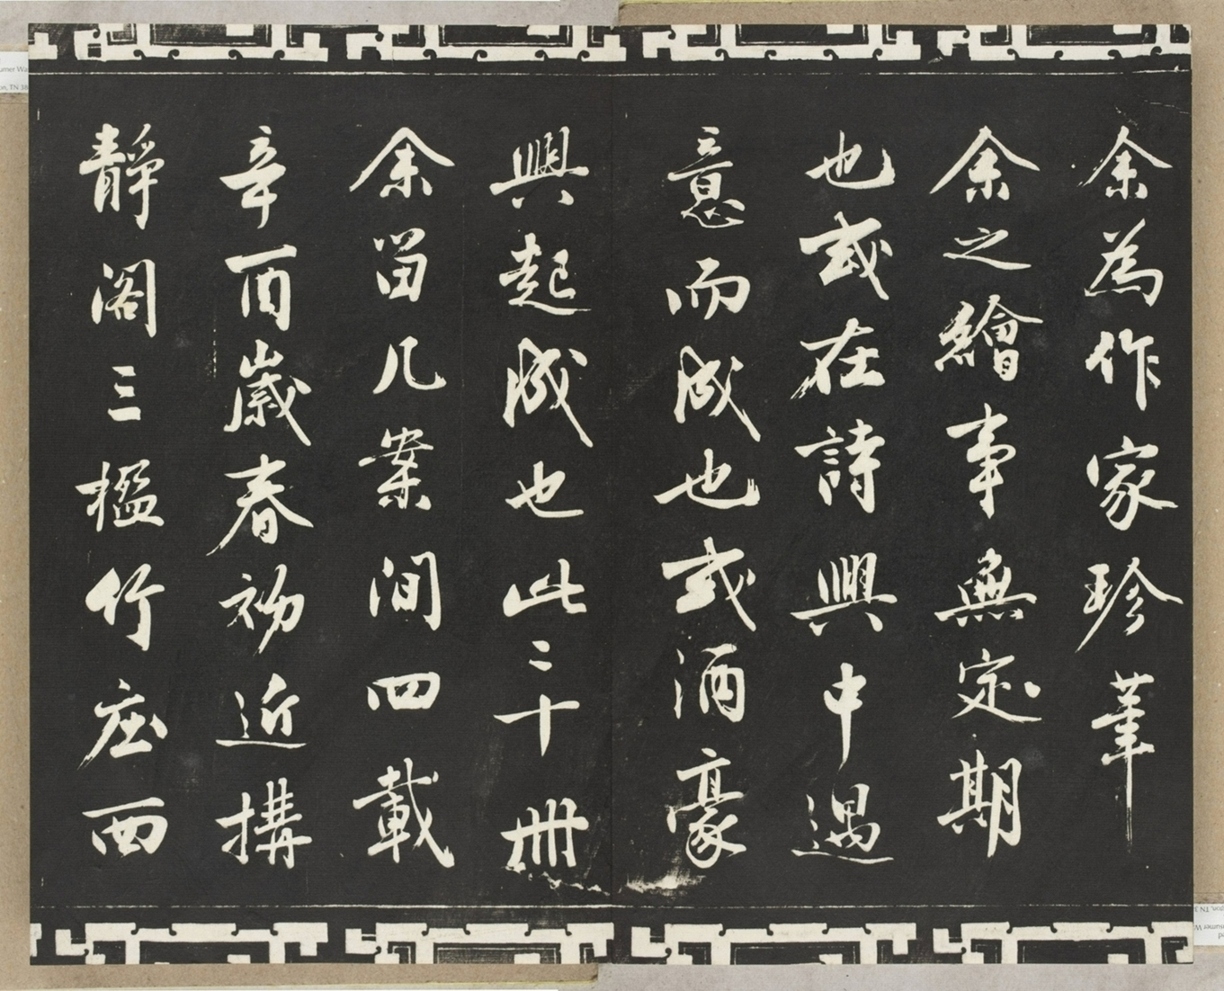 余為作家珍筆
余之繪事無定期
也或在詩興中遇
意而成也或酒豪
興起成也此二十冊
余留几案間四載
辛酉歲春初近搆
靜閣三楹竹庄西